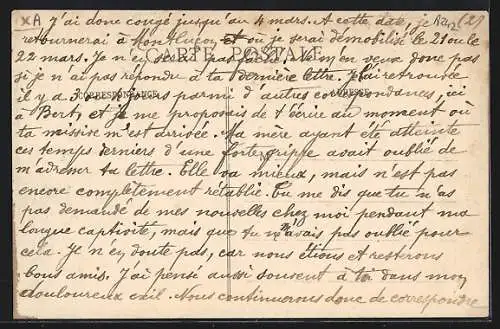 XA J'ai donc congé jusqu'au 4 mars. A cette date, je (2)
retournerai à Montluçon et où je serai démobilisé le 21 ou le
CARTE POSTALE
22 mars. Je n'en serai pas fâché. Ne m'en veux donc pas
si je n'ai pas répondu à ta dernière lettre. J'ai retrouvée
CORRESPONDANCE ADRESSE
il y a jours parmi d'autres correspondances, ici
à Bert, et je me proposais de t'écrire au moment où
ta missive m'est arrivée. Ma mère ayant été atteinte
ces temps derniers d'une forte grippe avait oublié de
m'adresser ta lettre. Elle va mieux, mais n'est pas
encore complètement rétablie. Tu me dis que tu n'as
pas demandé de mes nouvelles chez moi pendant ma
longue captivité, mais que tu m'avais pas oublié pour
cela. Je n'en doute pas, car nous étions et resterons
bons amis. J'ai pensé aussi souvent à toi dans mon
douloureux exil. Nous continuerons donc de correspondre